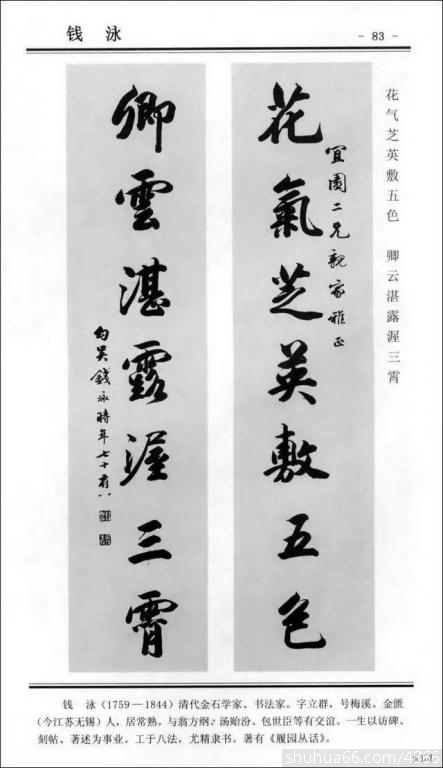 钱 泳
- 83 -
花气芝英敷五色 卿云湛露渥三霄
花氣芝英敷五色
宜園二兄親家雅正
卿雲湛露渥三霄
勾吴錢泳時年七十有八
钱 泳（1759—1844）清代金石学家、书法家。字立群，号梅溪。金匮
（今江苏无锡）人，居常熟。与翁方纲、汤贻汾、包世臣等有交谊。一生以访碑、
刻帖、著述为事业。工于八法，尤精隶书。著有《履园丛话》。
shuhua66.com/4866